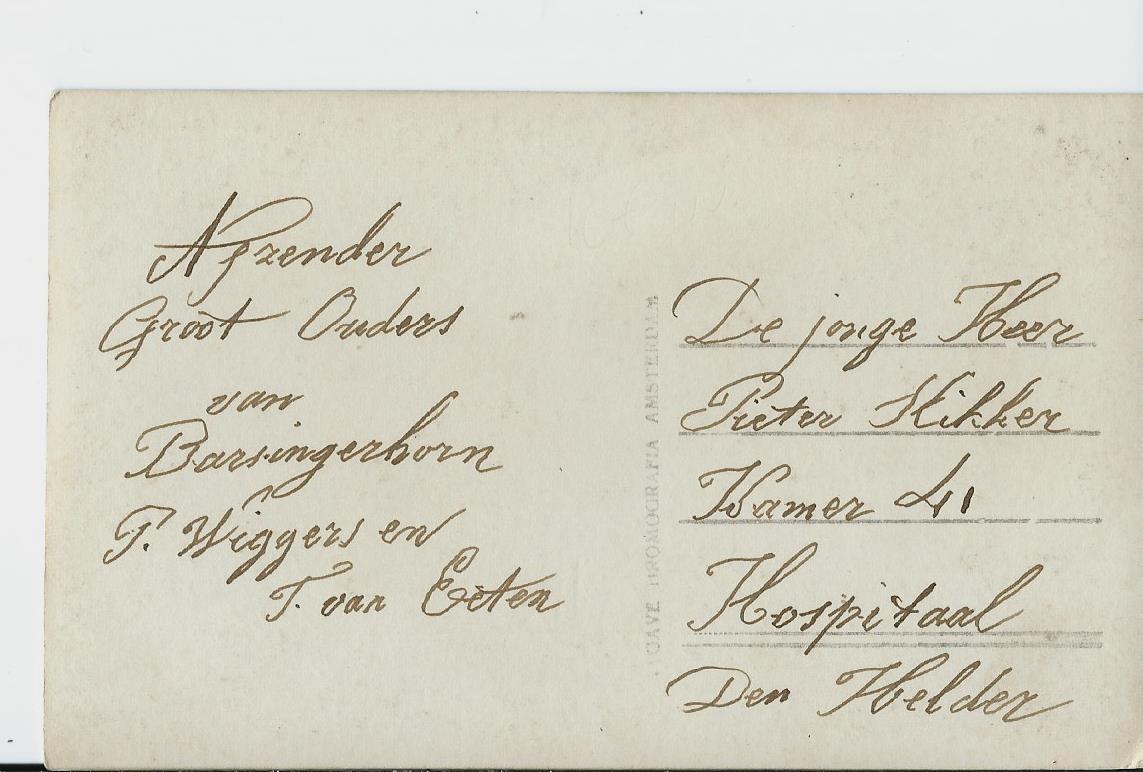 Afzender
Groot Ouders
van
Barsingerhorn
T. Wiggers en
T. van Eeten
UITGAVE BROMOGRAFIA AMSTERDAM
De jonge Heer
Pieter Slikker
Kamer 41
Hospitaal
Den Helder